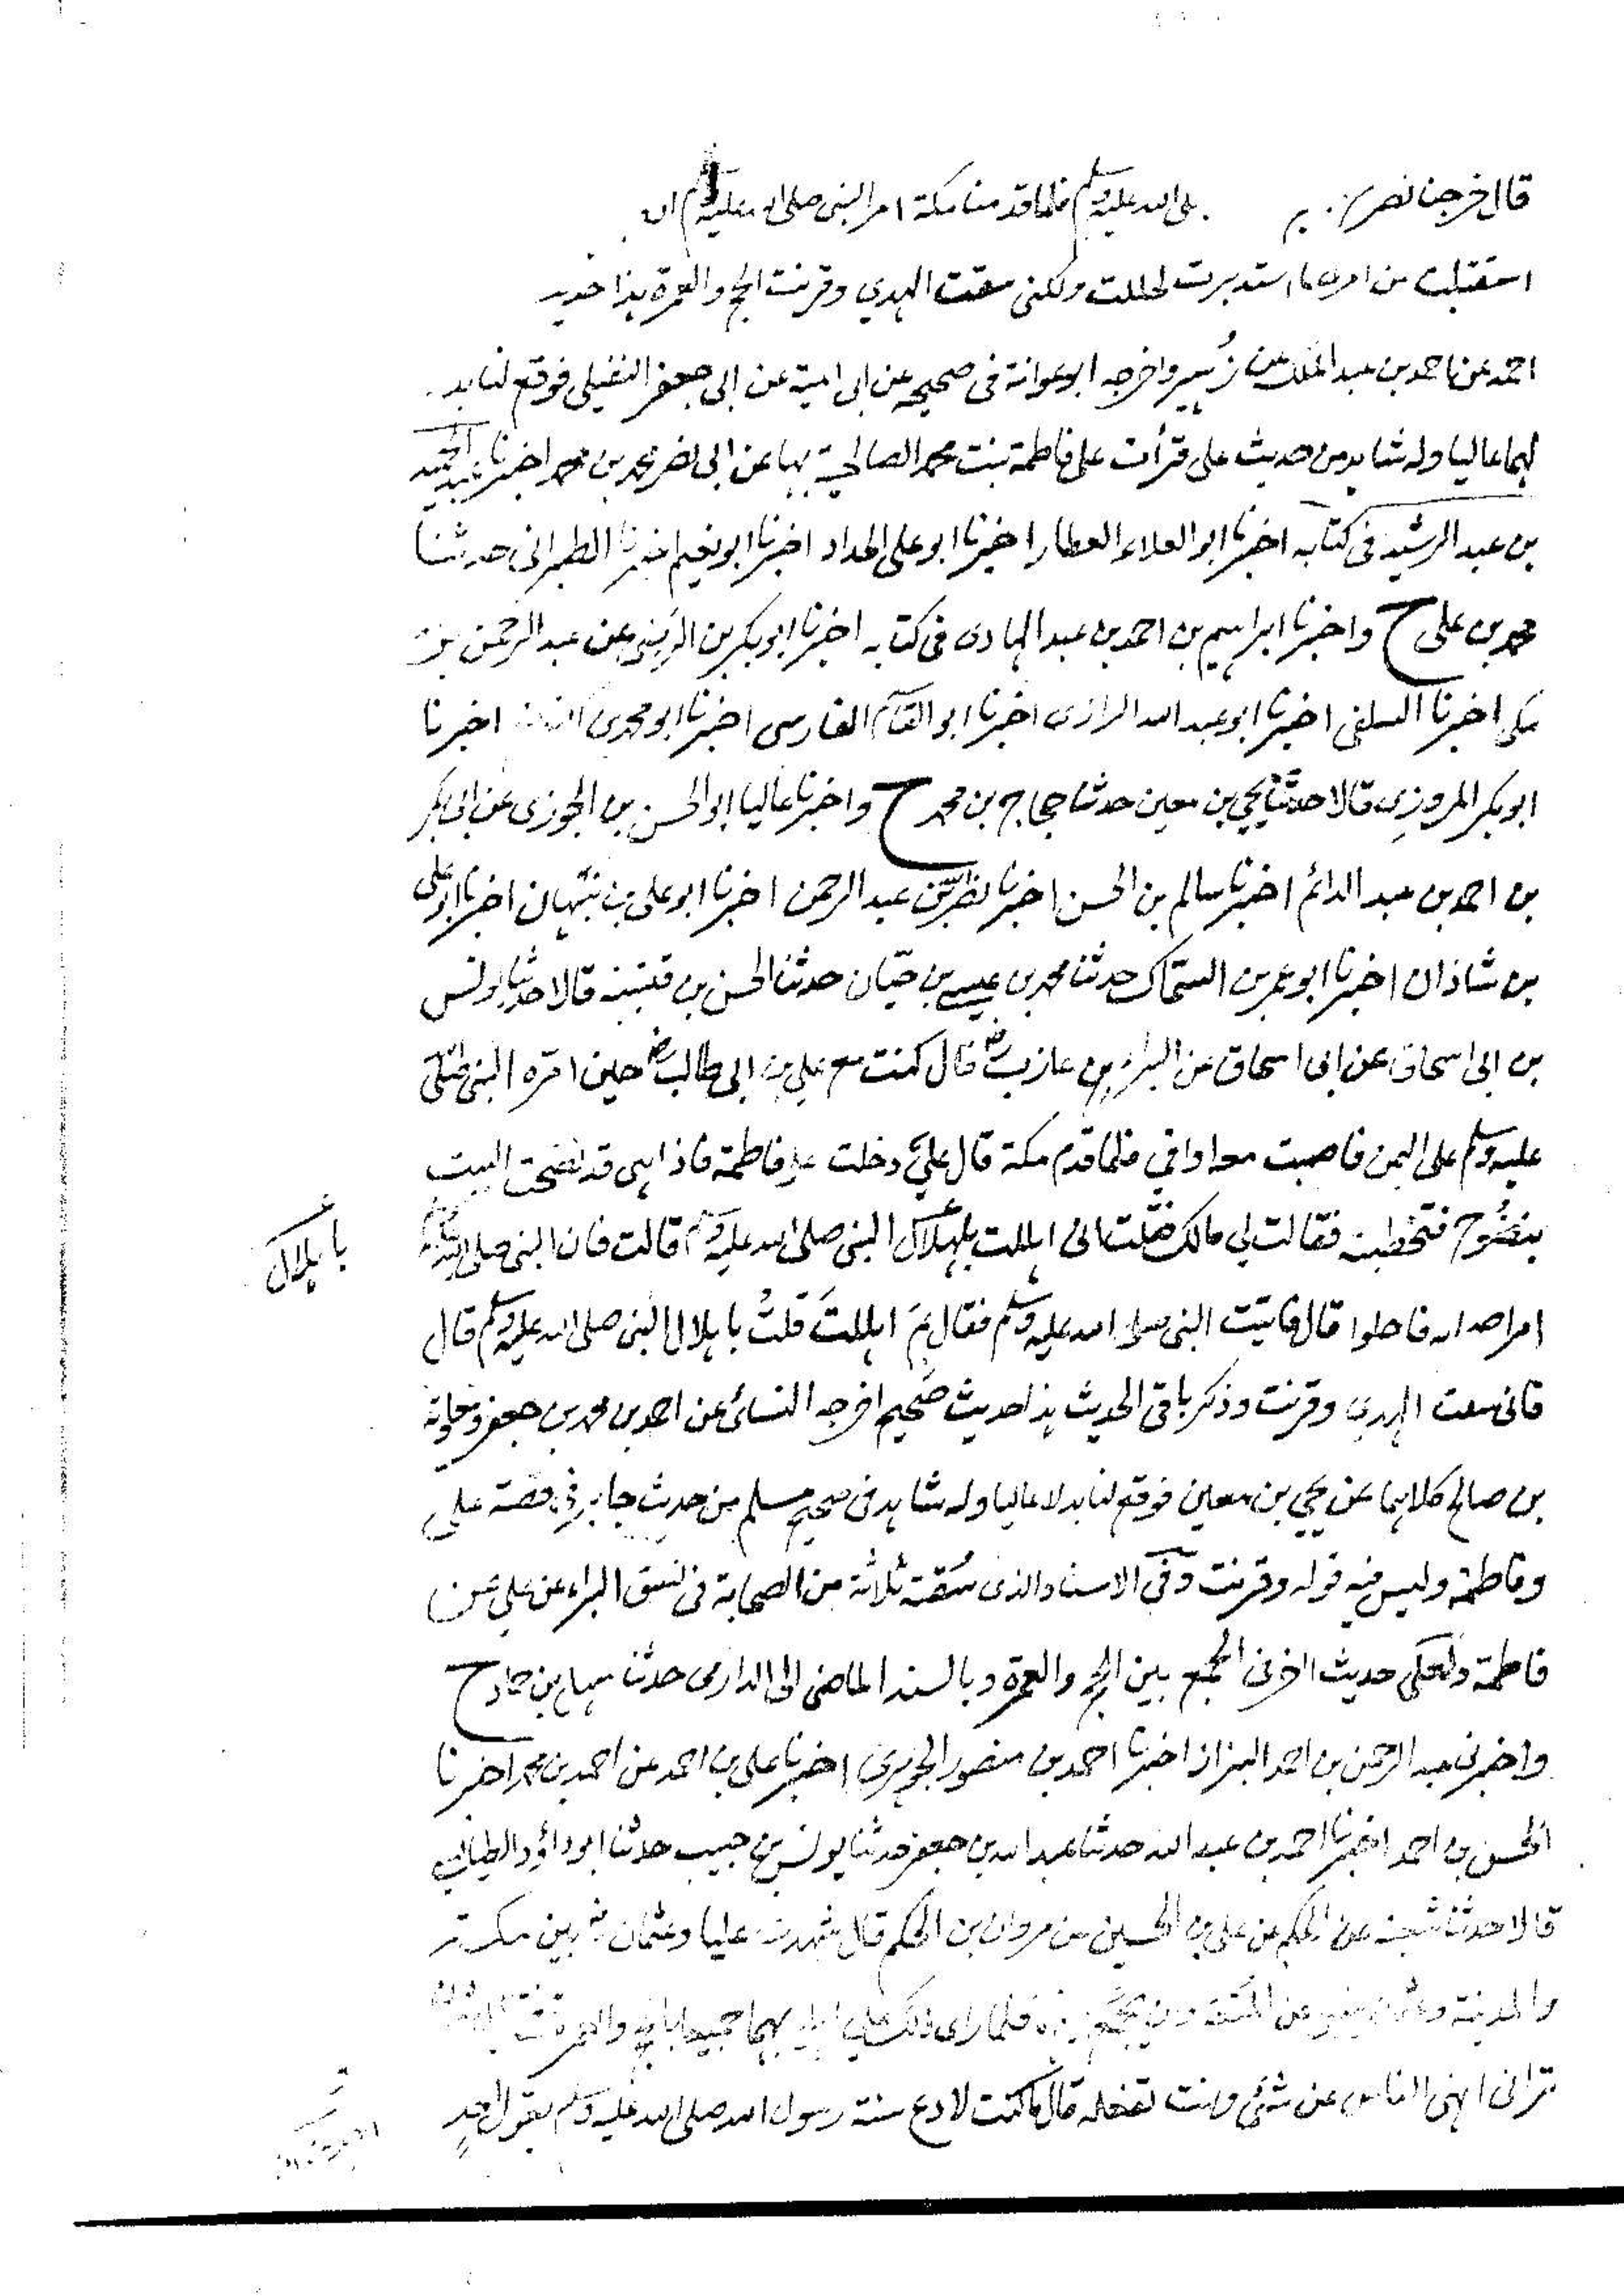 قال خرجنا نصرخ صلى الله عليه وسلم فلما قدمنا مكة امر النبى صلى الله عليه وسلم
استقبلت من امرى ما استدبرت لحللت ولكنى سقت الهدي وقرنت الحج والعمرة هذا حديث
احمد عن احمد بن عبد الملك عن زهير واخرجه ابو عوانة فى صحيحه عن ابى امية عن ابى جعفر النفيلى فوقع لنا بد
لهما عاليا وله شاهد من حديث على قرأت على فاطمة بنت محمد الصالحية بها عن ابى نصر محمد بن محمد اخبرنا عبد الحميد
بن عبد الرشيد فى كتابه اخبرنا ابو العلاء العطار اخبرنا ابو على الحداد اخبرنا ابو نعيم اخبرنا الطبرانى حدثنا
محمد بن على ح واخبرنا ابراهيم بن احمد بن عبد الهادى فى كتابه اخبرنا ابو بكر بن الرضى عن عبد الرحمن بن
مكى اخبرنا السلفى اخبرنا ابو عبد الله الرازى اخبرنا ابو القاسم الفارسى اخبرنا ابو محمد بن اخبرنا
ابو بكر المروزى قالا حدثنا يحيى بن معين حدثنا حجاج بن محمد ح واخبرنا عاليا ابو الحسن بن الجوزى عن ابى بكر
بن احمد بن عبد الدائم اخبرنا سالم بن الحسن اخبرنا نصر الله بن عبد الرحمن اخبرنا ابو على بن نبهان اخبرنا ابو على
بن شاذان اخبرنا ابو عمر بن السماك حدثنا محمد بن عيسے بن حيّان حدثنا الحسن بن قتيبة قالا حدثنا يونس
بن ابى اسحاق عن ابى اسحاق عن البراء بن عازب رض قال كنت مع على بن ابى طالب رض حين امره النبى صلى
عليه وسلم على اليمن فاصبت معه اواقي فلما قدم مكة قال علي دخلت على فاطمة فاذا هى قد نضحت البيت
بنضوح فتخطيته فقالت لي مالك فقلت انى اهللت باهلال النبى صلى الله عليه وسلم قالت فان النبى صلى الله عليه وسلم
باهلال
امر اصحابه فاحلوا قال فاتيت النبى صلى الله عليه وسلم فقال بم اهللتَ قلتُ باهلال النبى صلى الله عليه وسلم قال
فانى سقت الهدى وقرنت وذكر باقى الحديث هذا حديث صحيح اخرجه النسائى عن احمد بن محمد بن جعفر ومعاوية
بن صالح كلاهما عن يحيى بن معين فوقع لنا بدلا عاليا وله شاهد فى صحيح مسلم من حديث جابر فى قصة على
وفاطمة وليس فيه قوله وقرنت وفى الاسناد الذى سقته ثلاثة من الصحابة فى نسق البراء عن على عن
فاطمة ولعلى حديث اخر فى الجمع بين الحج والعمرة وبالسند الماضى الى الدارمى حدثنا سهل بن حماد ح
واخبرنى عبد الرحمن بن احمد البزاز اخبرنا احمد بن منصور الجوهرى اخبرنا على بن احمد عن احمد بن محمد اخبرنا
الحسن بن احمد اخبرنا احمد بن عبد الله حدثنا عبد الله بن جعفر حدثنا يونس بن حبيب حدثنا ابو داؤد الطيالسى
قالا حدثنا شعبة عن الحكم عن على بن الحسين عن مروان بن الحكم قال شهدت عليا وعثمان رض بين مكة
والمدينة وعثمان ينهى عن المتعة وان يجمع بينهما فلما راى ذلك علي اهل بهما جميعا بالحج والعمرة
ترانى انهى الناس عن شئى وانت تفعله قال ما كنت لادع سنة رسول الله صلى الله عليه وسلم بقول احدٍ